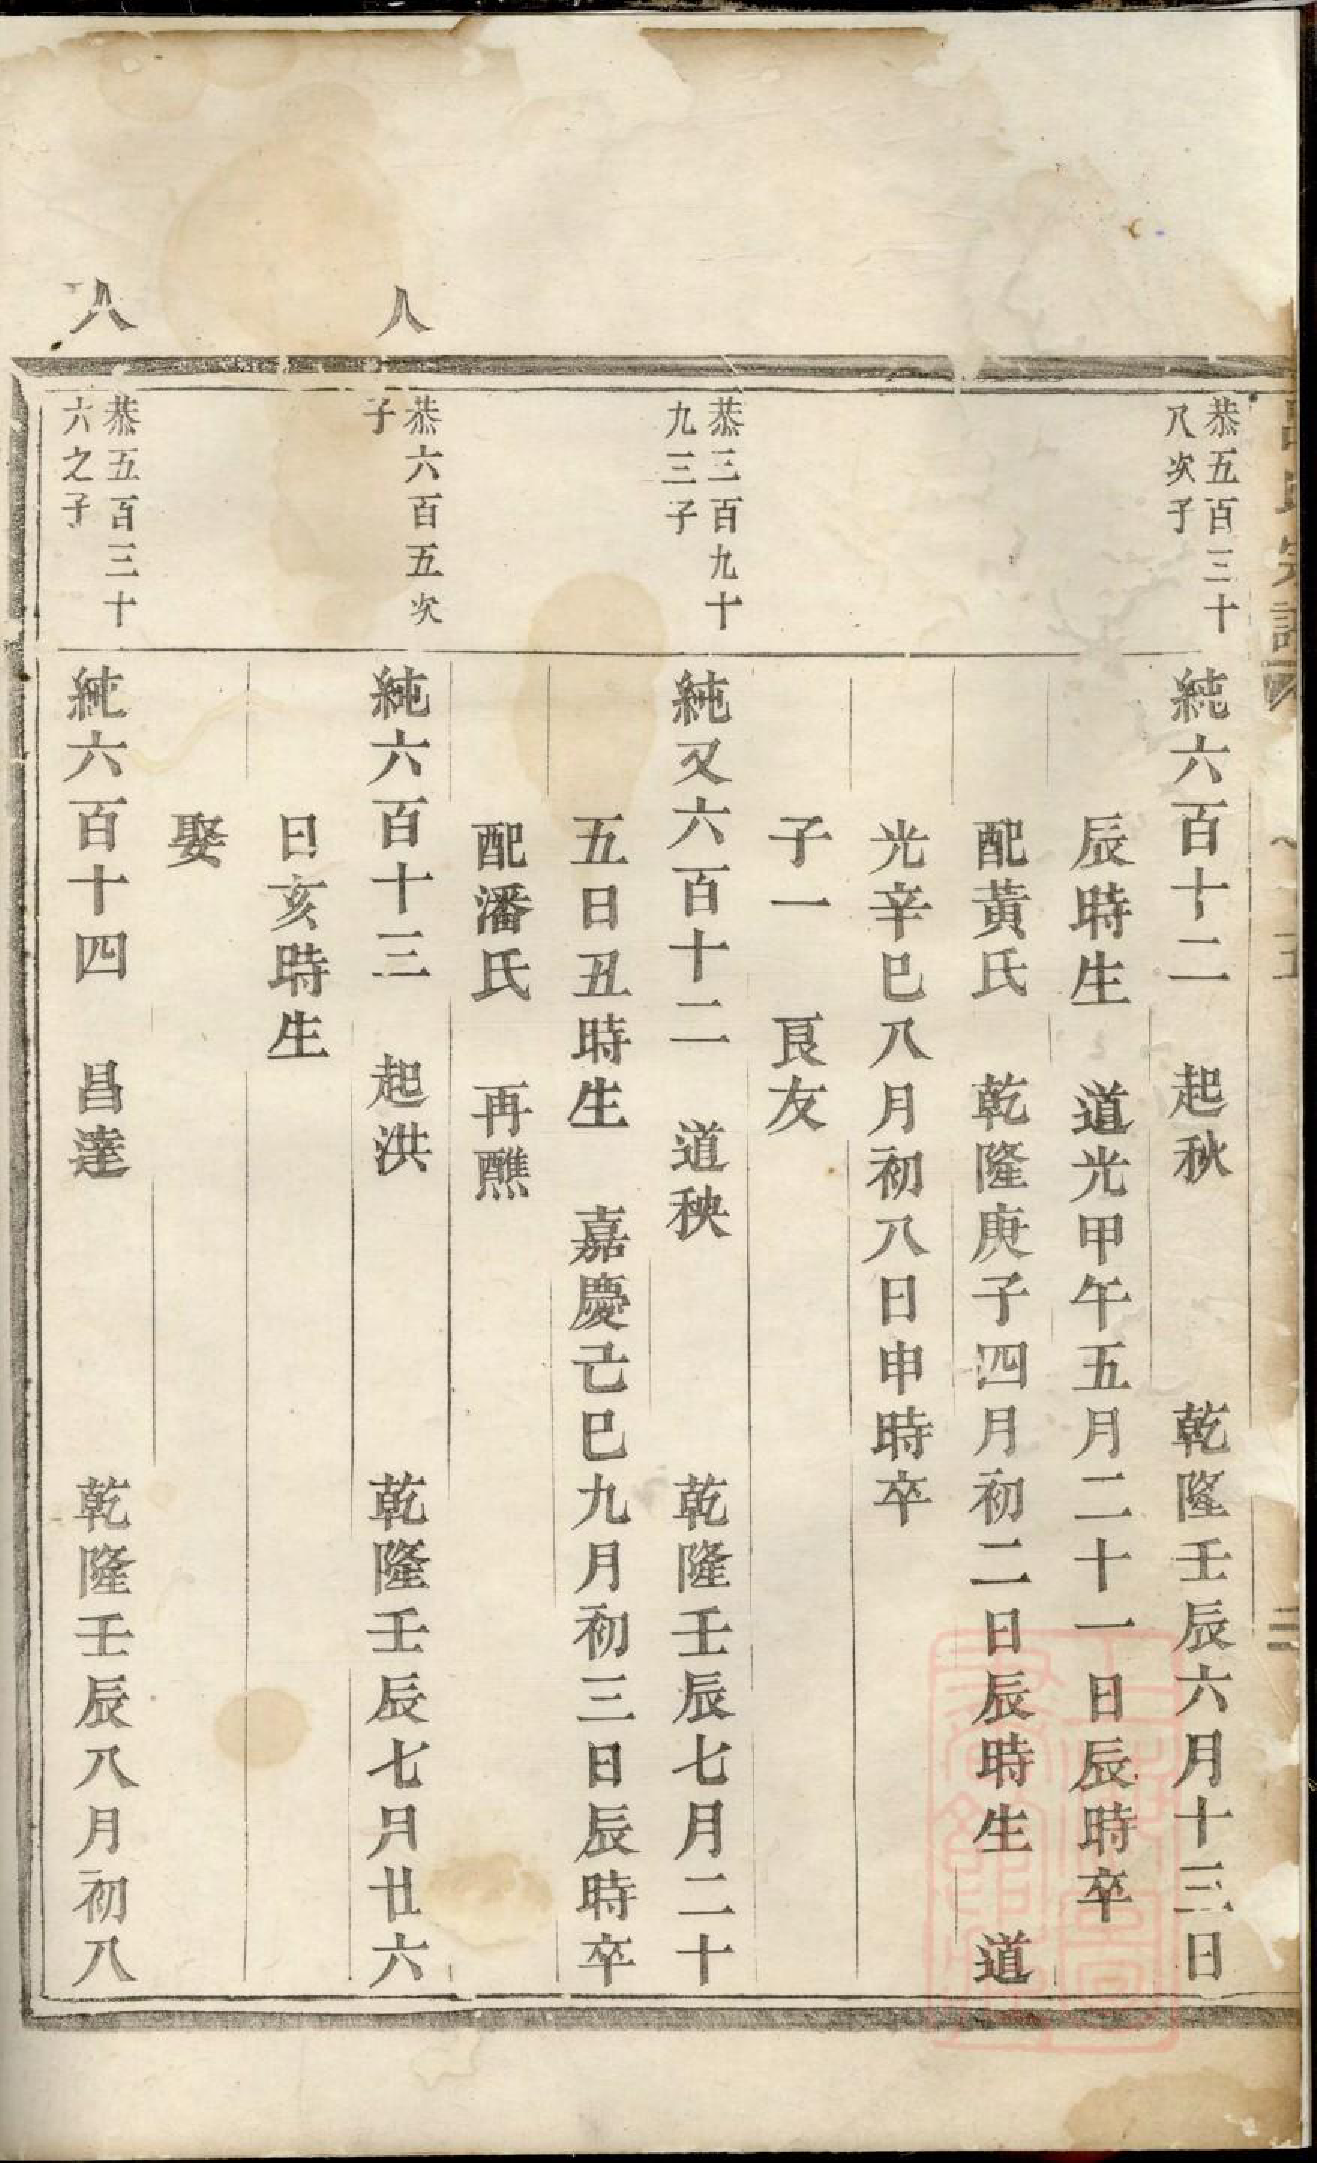 恭五百三十
八次子
純六百十二　起秋　乾隆壬辰六月十三日
辰時生　道光甲午五月二十一日辰時卒
配黃氏　乾隆庚子四月初二日辰時生　道
光辛巳八月初八日申時卒
子一　良友
恭三百九十
九三子
純又六百十二　道秧　乾隆壬辰七月二十
五日丑時生　嘉慶己巳九月初三日辰時卒
配潘氏　再醮
人
恭六百五次
子
純六百十三　起洪　乾隆壬辰七月廿六
日亥時生
娶
恭五百三十
六之子
純六百十四　昌達　乾隆壬辰八月初八